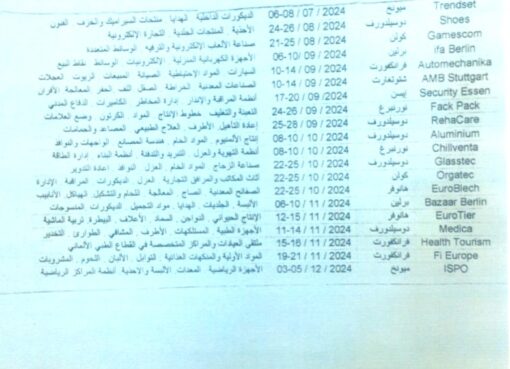 Trendset ميونخ 06-08 / 07 / 2024 الديكورات الداخلية الهدايا منتجات السيراميك والحرف الفنون
Shoes دوسيلدورف 24-26 / 08 / 2024 الأحذية المنتجات الجلدية التجارة الإلكترونية
Gamescom كولن 21-25 / 08 / 2024 صناعة الألعاب الإلكترونية والترفيه الوسائط المتعددة
ifa Berlin برلين 06-10 / 09 / 2024 الأجهزة الكهربائية المنزلية الإلكترونيات الوسائط نقاط البيع
Automechanika فرانكفورت 10-14 / 09 / 2024 السيارات المواد الاحتياطية الصيانة المبيعات الزيوت العجلات
AMB Stuttgart شتوتغارت 10-14 / 09 / 2024 الصناعات المعدنية الخراطة الصقل اللف الحفر المعالجة الأفران
Security Essen إيسن 17-20 / 09 / 2024 أنظمة المراقبة والإنذار إدارة المخاطر الكاميرات الدفاع المدني
Fack Pack نورنبرغ 24-26 / 09 / 2024 التعبئة والتغليف خطوط الإنتاج المواد الكرتون وضع العلامات
RehaCare دوسيلدورف 25-28 / 09 / 2024 إعادة التأهيل الأطراف العلاج الطبيعي المصاعد والحمامات
Aluminium دوسيلدورف 08-10 / 10 / 2024 إنتاج الألمنيوم المواد الخام هندسة المصانع الواجهات والنوافذ
Chillventa نورنبرغ 08-10 / 10 / 2024 أنظمة التهوية والعزل التبريد والتدفئة أنظمة البناء إدارة الطاقة
Glasstec دوسيلدورف 22-25 / 10 / 2024 صناعة الزجاج المواد الخام العزل النوافذ إعادة التدوير
Orgatec كولن 22-25 / 10 / 2024 أثاث المكاتب والمرافق التجارية العزل الديكورات المراقبة الإدارة
EuroBlech هانوفر 22-25 / 10 / 2024 الصفائح المعدنية الصاج المعالجة اللحام والتشكيل الهياكل الأنابيب
Bazaar Berlin برلين 06-10 / 11 / 2024 الألبسة الجلديات الهدايا مواد التجميل الديكورات المنسوجات
EuroTier هانوفر 12-15 / 11 / 2024 الإنتاج الحيواني الدواجن السماد الأعلاف البيطرة تربية الماشية
Medica دوسيلدورف 11-14 / 11 / 2024 الأجهزة الطبية المستهلكات الأطراف المشافي الطوارئ التخدير
Health Tourism فرانكفورت 15-16 / 11 / 2024 ملتقى العيادات والمراكز المتخصصة في القطاع الطبي الألماني
Fi Europe فرانكفورت 19-21 / 11 / 2024 المواد الأولية والمنكهات الغذائية التوابل الألبان اللحوم المشروبات
ISPO ميونخ 03-05 / 12 / 2024 الأجهزة الرياضية المعدات الألبسة والأحذية أنظمة المراكز الرياضية